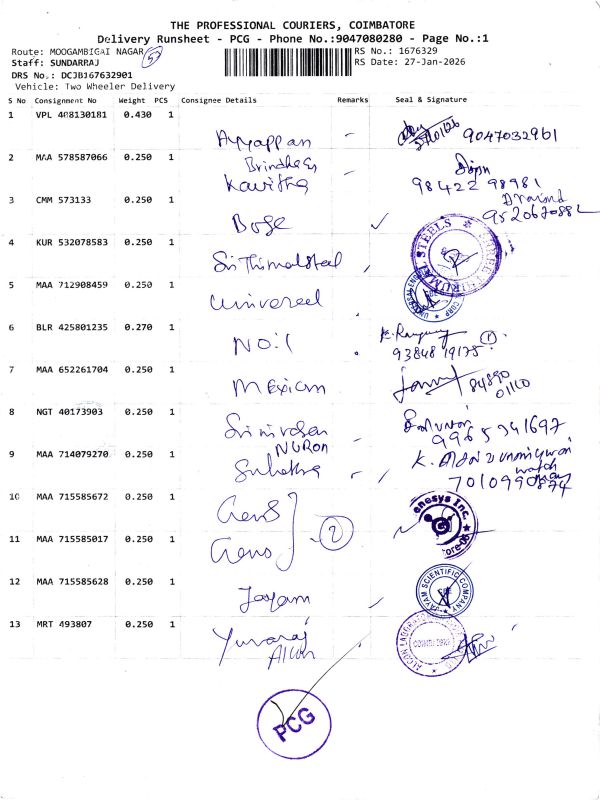 THE PROFESSIONAL COURIERS, COIMBATORE
Delivery Runsheet - PCG - Phone No.:9047080280 - Page No.:1
Route: MOOGAMBIGAI NAGAR
RS No.: 1676329
Staff: SUNDARRAJ
RS Date: 27-Jan-2026
DRS No.: DCJBJ67632901
Vehicle: Two Wheeler Delivery
S No Consignment No Weight PCS Consignee Details Remarks Seal & Signature
1 VPL 408130181 0.430 1
Ayyappan 9047032961
2 MAA 578587066 0.250 1
Kavitha 98422 98981
3 CMM 573133 0.250 1
Bose
4 KUR 532078583 0.250 1
Sri Thirmalsteel
5 MAA 712908459 0.250 1
Universel
6 BLR 425801235 0.270 1
NO:1 93848 19175 1
7 MAA 652261704 0.250 1
Mexicm 84890
01110
8 NGT 40173903 0.250 1
Srinivasan 9965341697
NURON
9 MAA 714079270 0.250 1
Suhatha
10 MAA 715585672 0.250 1
Gens enesys Inc.
2
11 MAA 715585017 0.250 1
Gens
12 MAA 715585628 0.250 1
Jayam JAYAM SCIENTIFIC COMPANY
13 MRT 493807 0.250 1
Yuvaraj
Alcon
PCG